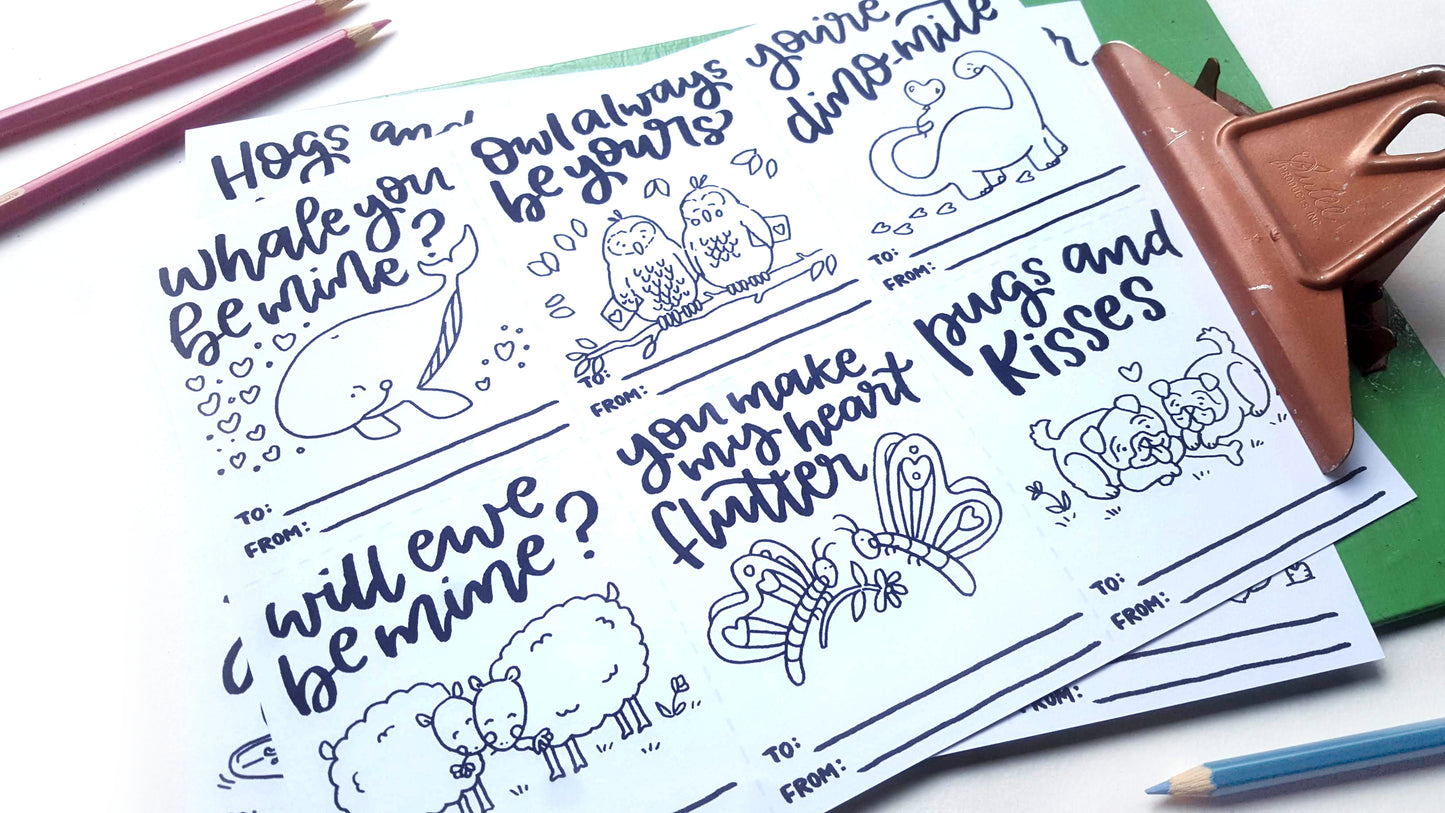 Hogs and
whale you
be mine?
TO:
FROM:
Owl always
be yours
TO:
FROM:
you're
dino-mite
TO:
FROM:
will ewe
be mine?
you make
my heart
flutter
TO:
FROM:
pugs and
Kisses
TO:
FROM:
FROM: